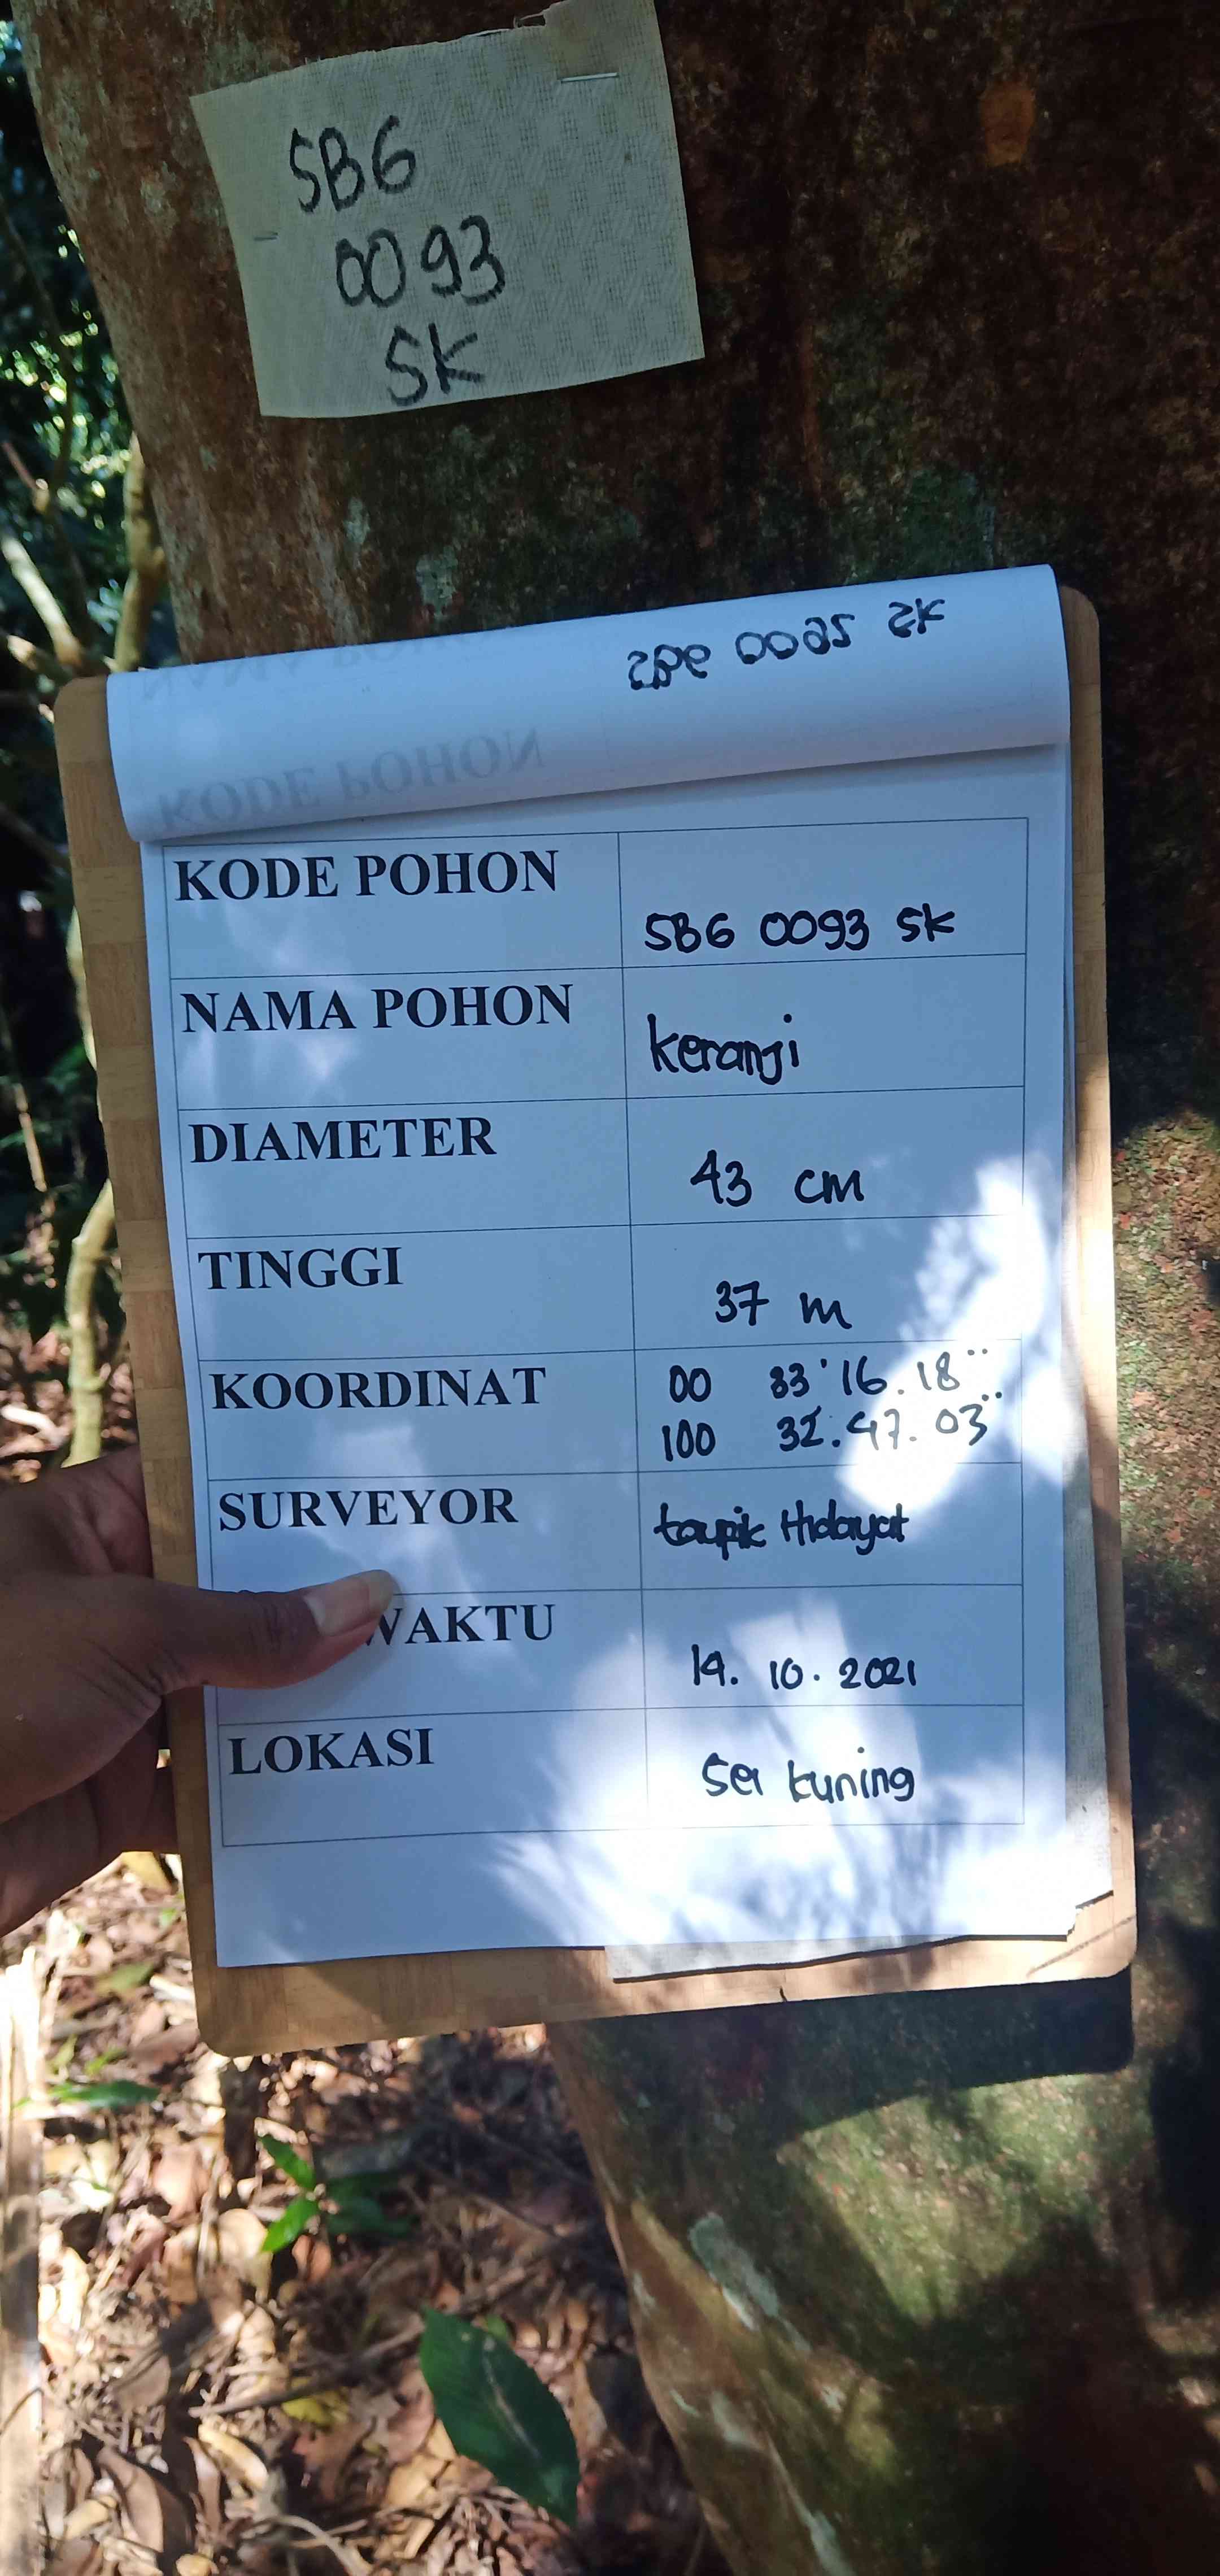 SBG
0093
SK
SBG 0092 SK
KODE POHON
KODE POHON
SBG 0093 SK
NAMA POHON
keranji
DIAMETER
43 cm
TINGGI
37 m
KOORDINAT
00 33'16.18"
100 32.47.03"
SURVEYOR
taupik Hidayat
WAKTU
14. 10. 2021
LOKASI
Sei kuning